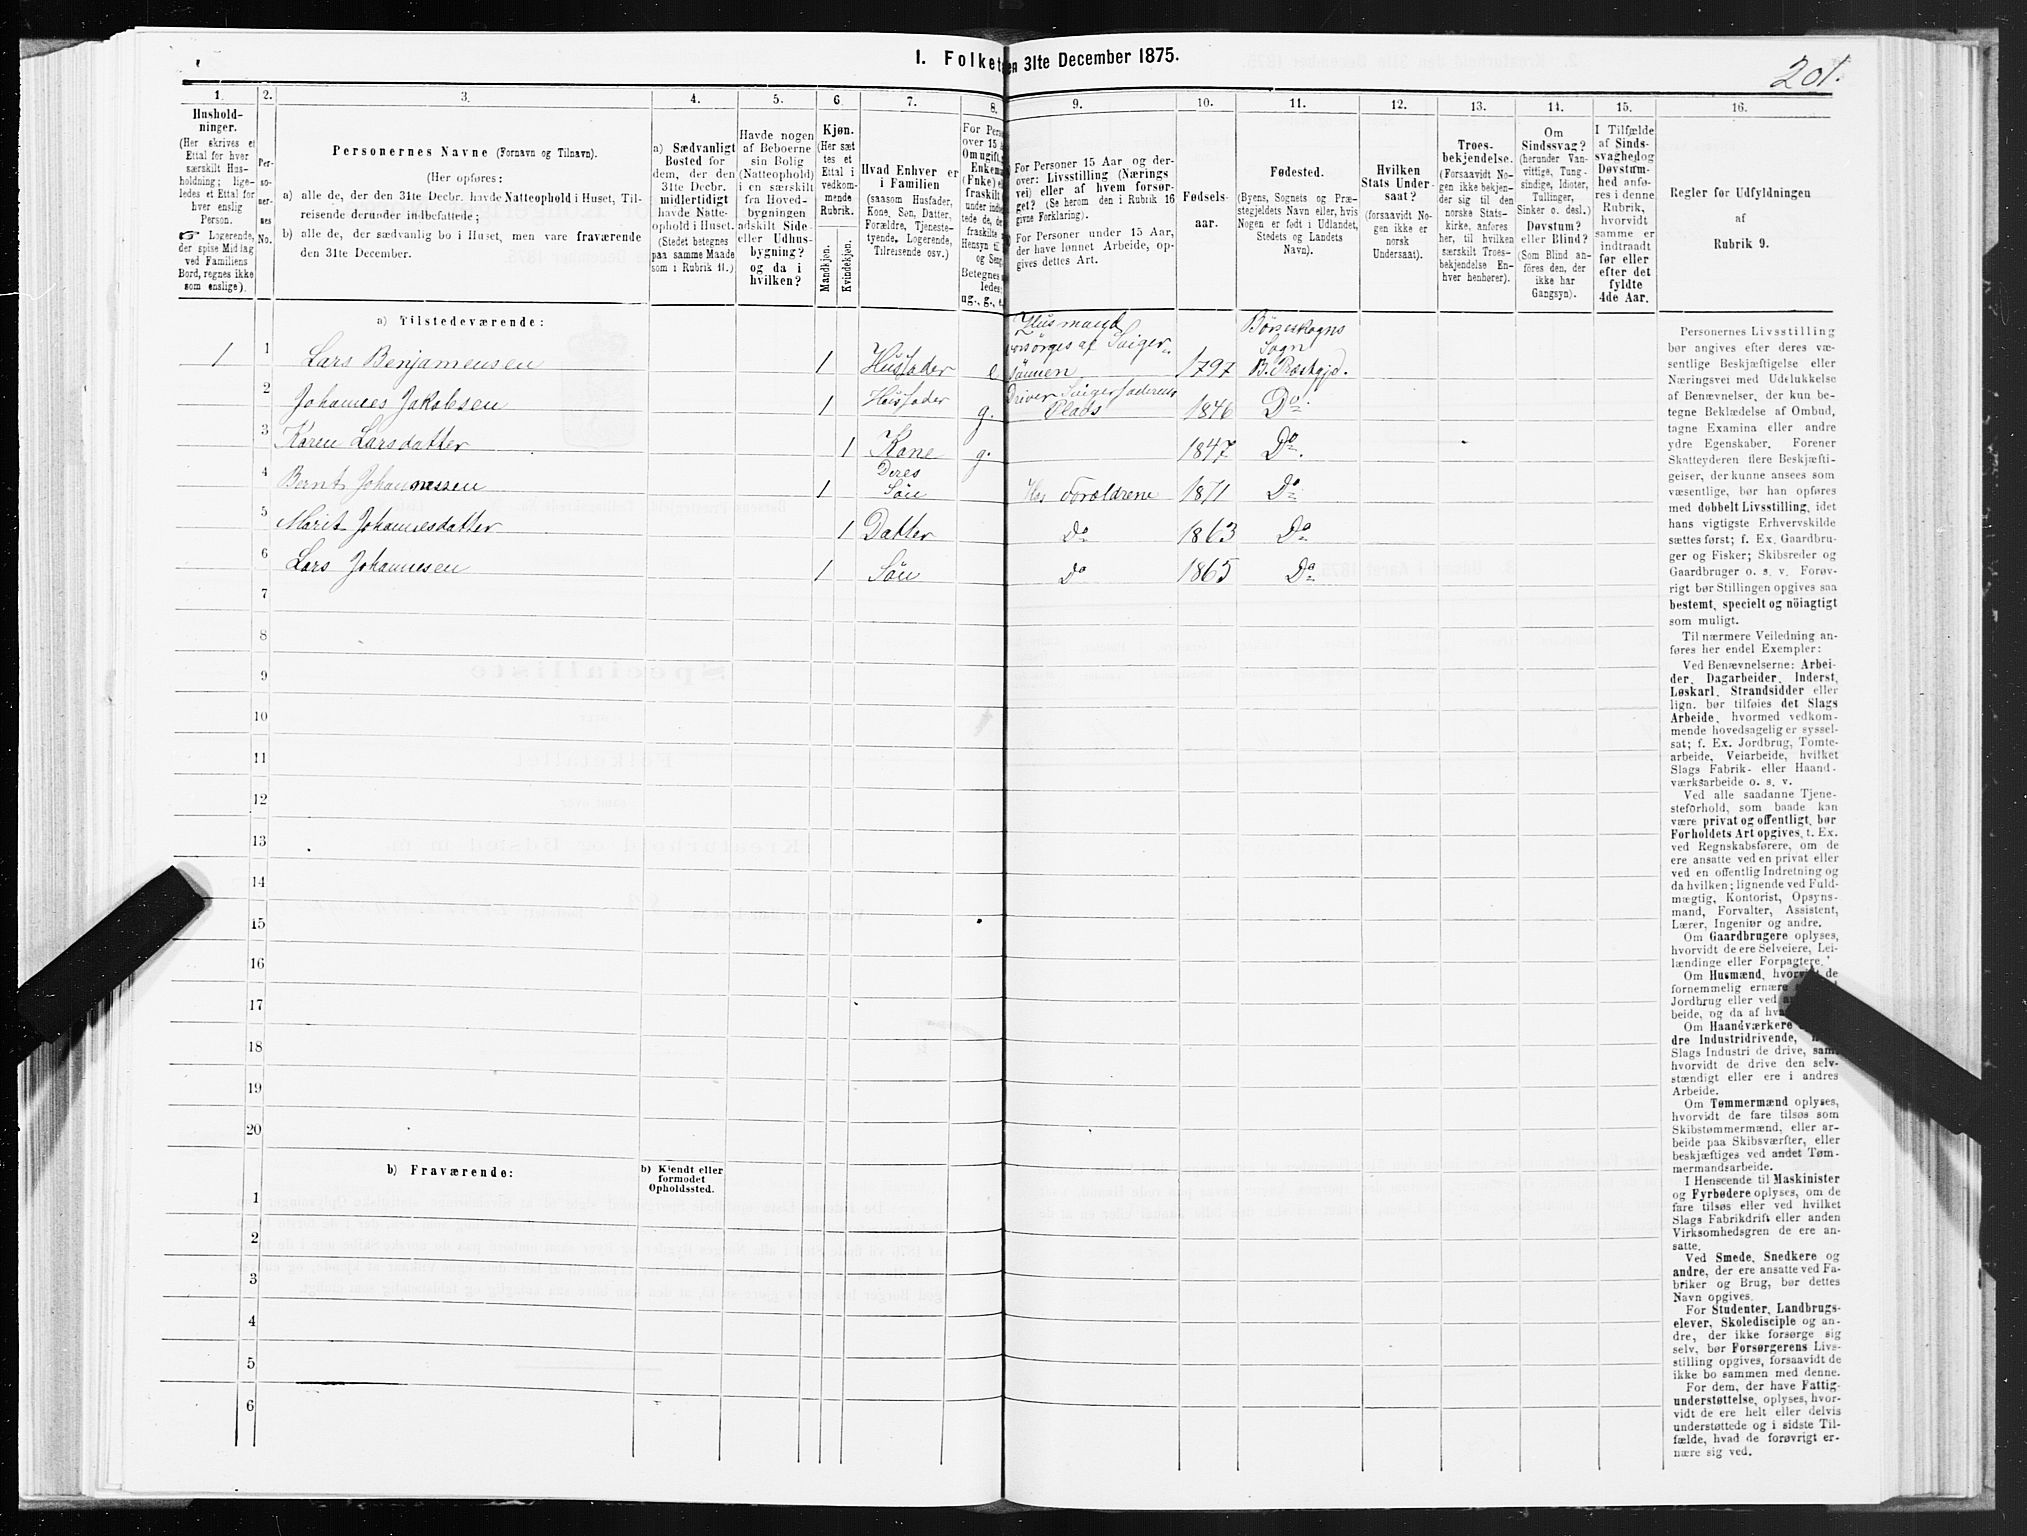 1. Folket en 31te December 1875.
201.
1. 2. 3. 4. 5. 6. 7. 8. 9. 10. 11. 12. 13. 14. 15. 16.
Hushold-
ninger.
(Her skrives et
Ettal for hver
særskilt Hus-
holdning; lige-
ledes et Ettal for
hver enslig
Person.
☞ Logerende,
der spise Middag
ved Familiens
Bord, regnes ikke
som enslige).
Per-
so-
ner-
nes
No.
Personernes Navne (Fornavn og Tilnavn).
(Her opføres:
a) alle de, der den 31te Decbr. havde Natteophold i Huset, Til-
reisende derunder indbefattede;
b) alle de, der sædvanlig bo i Huset, men vare fraværende
den 31te December.
a) Sædvanligt
Bosted for
dem, der den
31te Decbr.
midlertidigt
havde Natte-
ophold i Huset.
(Stedet betegnes
paa samme Maade
som i Rubrik 11.)
Havde nogen
af Beboerne
sin Bolig
(Natteophold)
i en særskilt
fra Hoved-
bygningen
adskilt Side-
eller Udhus-
bygning?
og da i
hvilken?
Kjøn.
(Her sæt
tes et
Ettal i
vedkom-
mende
Rubrik.
Mandkjøn.
Kvindekjøn.
Hvad Enhver er
i Familien
(saasom Husfader,
Kone, Søn, Datter,
Forældre, Tjeneste-
tyende, Logerende,
Tilreisende osv.)
For Pers
over 15 A
Om ugift,
Enkem
(Enke) e
fraskilt
under indb
tede de, d
fraskilte
Hensyn til
og Seng
Betegnes
ledes:
ug., g., e.
For Personer 15 Aar og der-
over: Livsstilling (Nærings
vei) eller af hvem forsør-
get? (Se herom den i Rubrik 16
givne Forklaring).
For Personer under 15 Aar,
der have lønnet Arbeide, op-
gives dettes Art.
Fødsels-
aar.
Fødested.
(Byens, Sognets og Præ-
stegjeldets Navn eller, hvis
Nogen er født i Udlandet,
Stedets og Landets
Navn).
Hvilken
Stats Under-
saat?
(forsaavidt No-
gen ikke er
norsk
Undersaat).
Troes-
bekjendelse.
(Forsaavidt No-
gen ikke bekjen-
der sig til den
norske Stats-
kirke, anføres
her, til hvilken
særskilt Troes-
bekjendelse En-
hver henhører).
Om
Sindssvag?
(herunder Van-
vittige, Tung-
sindige, Idioter,
Tullinger,
Sinker o. desl.)
Døvstum?
eller Blind?
(Som Blind an-
føres den, der
ikke har
Gangsyn).
I Tilfælde
af Sinds-
svaghed og
Døvstum-
hed anfø-
res i denne
Rubrik,
hvorvidt
samme er
indtraadt
før eller
efter det
fyldte
4de Aar.
Regler for Udfyldningen
af
Rubrik 9.
a) Tilstedeværende:
1 1 Lars Benjamensen 1 Husfader e Husmand forsørges af Svigersønnen 1797 Børseskogns Sogn B. Præstgjd.
2 Johannes Jakobsen 1 Husfader g. Driver Svigerfaderens Plads 1846 Do
3 Karen Larsdatter 1 Kone g. 1847 Do.
4 Bernt Johannessen 1 Deres Søn Hos Forældrene 1871 Do
5 Marit Johannesdatter 1 Datter Do 1863 Do
6 Lars Johannesen 1 Søn Do 1865 Do
7
8
9
10
11
12
13
14
15
16
17
18
19
20
b) Fraværende:
b) Kjendt eller
formodet
Opholdssted.
1
2
3
4
5
6
Personernes Livsstilling
bør angives efter deres væ-
sentlige Beskjæftigelse eller
Næringsvei med Udelukkelse
af Benævnelser, der kun be-
tegne Beklædelse af Ombud,
tagne Examina eller andre
ydre Egenskaber. Forener
Skatteyderen flere Beskjæfti-
gelser, der kunne ansees som
væsentlige, bør han opføres
med dobbelt Livsstilling, idet
hans vigtigste Erhvervskilde
sættes først; f. Ex. Gaardbru-
ger og Fisker; Skibsreder og
Gaardbruger o. s. v. Forøv-
rigt bør Stillingen opgives saa
bestemt, specielt og nöiagtigt
som muligt.
Til nærmere Veiledning an-
føres her endel Exempler:
Ved Benævnelserne: Arbei-
der, Dagarbeider, Inderst,
Løskarl, Strandsidder eller
lign. bør tilføies det Slags
Arbeide, hvormed vedkom-
mende hovedsagelig er syssel-
sat; f. Ex. Jordbrug, Tomte-
arbeide, Veiarbeide, hvilket
Slags Fabrik- eller Haand-
værksarbeide o. s. v.
Ved alle saadanne Tjene-
steforhold, som baade kan
være privat og offentligt, bør
Forholdets Art opgives, t. Ex.
ved Regnskabsførere, om de
ere ansatte ved en privat eller
ved en offentlig Indretning og
da hvilken; lignende ved Fuld-
mægtig, Kontorist, Opsyns-
mand, Forvalter, Assistent,
Lærer, Ingeniør og andre.
Om Gaardbrugere oplyses,
hvorvidt de ere Selveiere, Lei-
lændinge eller Forpagtere.
Om Husmænd, hvorvidt de
fornemmelig ernære
Jordbrug eller ved
beide, og da af
Om Haandværkere
dre Industridrivende,
Slags Industri de drive, samt
hvorvidt de drive den selv-
stændigt eller ere i andres
Arbeide.
Om Tømmermænd oplyses,
hvorvidt de fare tilsøs som
Skibstømmermænd, eller ar-
beide paa Skibsværfter, eller
beskjæftiges ved andet Tøm-
mermandsarbeide.
I Henseende til Maskinister
og Fyrbødere oplyses, om de
fare tilsøs eller ved hvilket
Slags Fabrikdrift eller anden
Virksomhedsgren de ere an-
satte.
Ved Smede, Snedkere og
andre, der ere ansatte ved Fa-
briker og Brug, bør dettes
Navn opgives.
For Studenter, Landbrugs-
elever, Skoledisciple og an-
dre, der ikke forsørge sig
selv, bør Forsørgerens Livs-
stilling opgives, forsaavidt de
ikke bo sammen med denne.
For dem, der have Fattig-
understøttelse, oplyses, hvor-
vidt de ere helt eller delvis
understøttede og i sidste Til-
fælde, hvad de forøvrigt er-
nære sig ved.